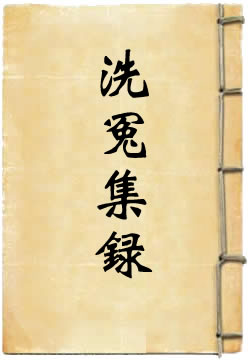 洗冤集録